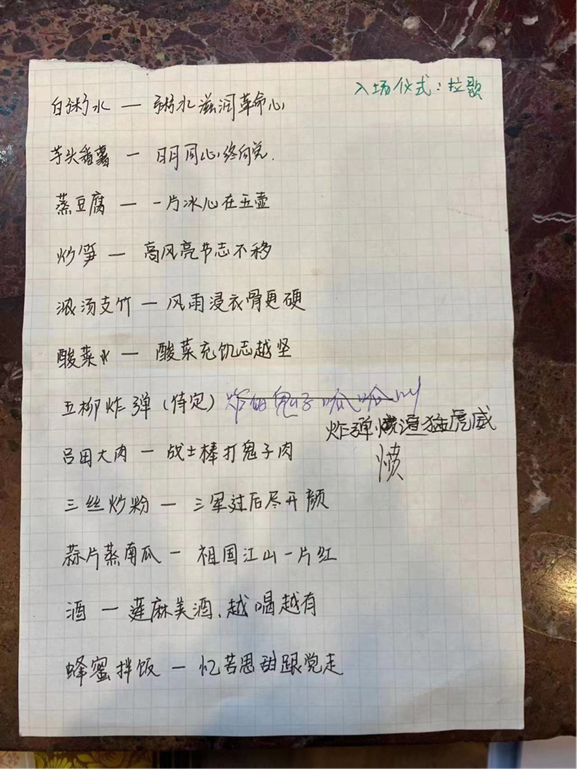 入场仪式：拉歌
白粥水 — 粥水滋润革命心
芋头番薯 — 日月同心终向党.
蒸豆腐 — 一片冰心在玉壶
炒笋 — 高风亮节志不移
浓汤支竹 — 风雨浸衣骨更硬
酸菜 — 酸菜充饥志越坚
五柳炸弹（待定）
炸弹 猛虎威
愤
吕田大肉 — 战士棒打鬼子肉
三丝炒粉 — 三军过后尽开颜
蒜片蒸南瓜 — 祖国江山一片红
酒 — 莲麻美酒，越喝越有
蜂蜜拌饭 — 忆苦思甜跟党走